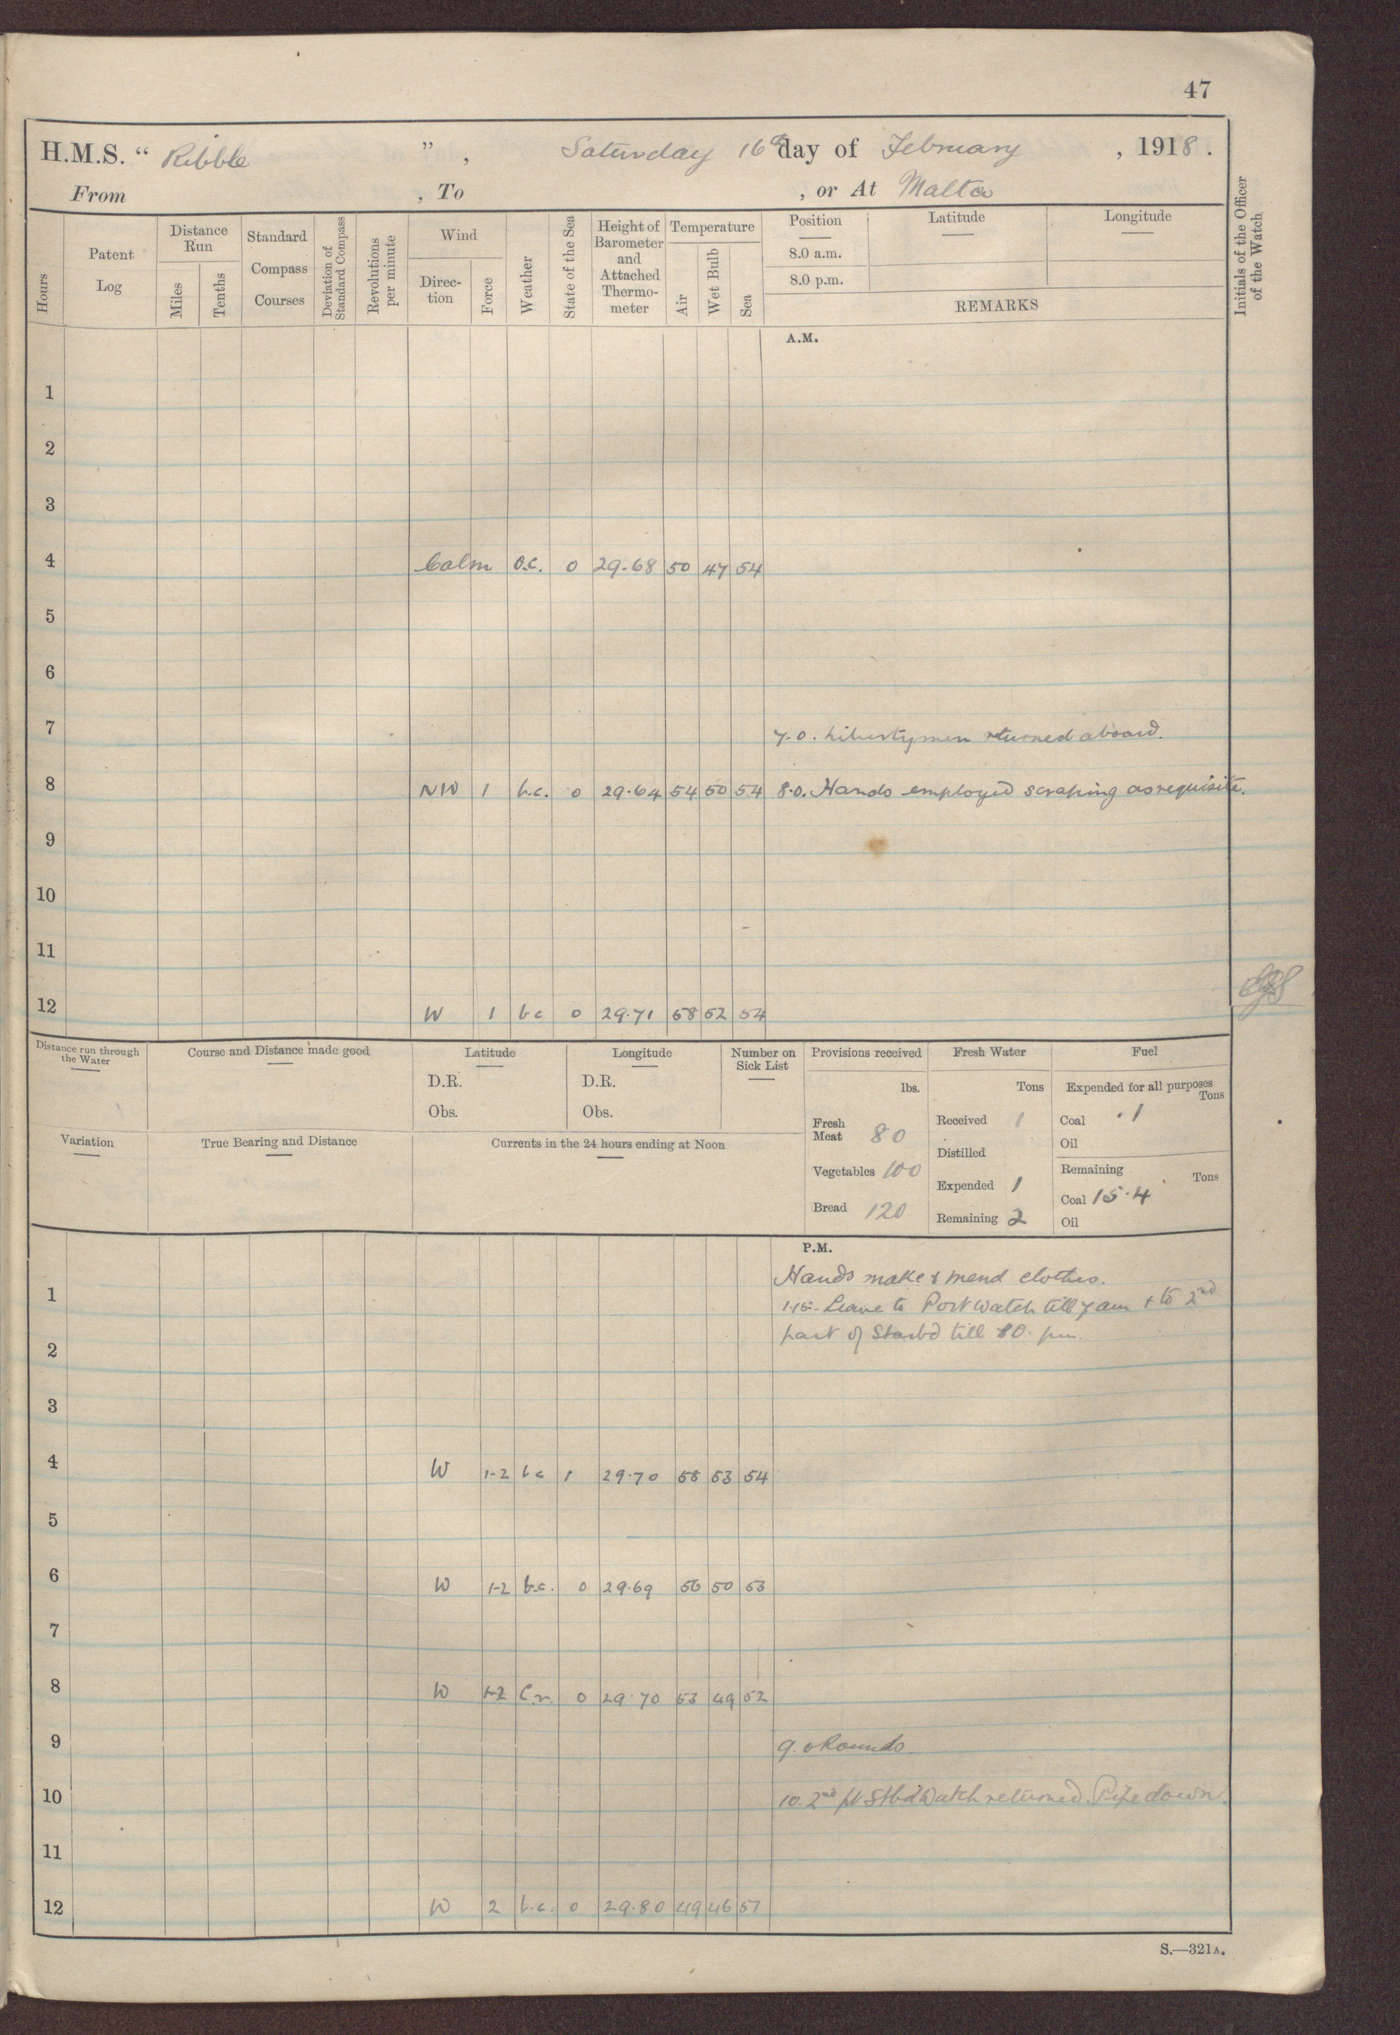 47
H.M.S. “ Ribble ” , Saturday 16th day of February , 1918 .
From , To , or At Malta
Hours
Patent Log
Distance Run
Miles
Tenths
Standard Compass Courses
Deviation of Standard Compass
Revolutions per minute
Wind
Direc- tion
Force
Weather
State of the Sea
Height of Barometer and Attached Thermo- meter
Temperature
Air
Wet Bulb
Sea
Position
8.0 a.m.
8.0 p.m.
Latitude
Longitude
REMARKS
Initials of the Officer of the Watch
A.M.
1
2
3
4 Calm o.c. 0 29.68 50 47 54
5
6
7 7.0. Libertymen returned aboard.
8 NW 1 b.c. 0 29.64 54 50 54 8.0. Hands employed scraping as requisite.
9
10
11
12 W 1 bc 0 29.71 58 52 54
Distance run through the Water
Course and Distance made good
Latitude
D.R.
Obs.
Longitude
D.R.
Obs.
Number on Sick List
Variation
True Bearing and Distance
Currents in the 24 hours ending at Noon
Provisions received
lbs.
Fresh Meat 80
Vegetables 100
Bread 120
Fresh Water
Tons
Received 1
Distilled
Expended 1
Remaining 2
Fuel
Expended for all purposes
Tons
Coal .1
Oil
Remaining Tons
Coal 15.4
Oil
P.M.
Hands make & mend clothes.
1 1.15. Leave to Port Watch till 7 am & to 2nd
part of Starbd till 10. pm.
2
3
4 W 1-2 bc 1 29.70 58 53 54
5
6 W 1-2 b.c. 0 29.69 56 50 53
7
8 W 1-2 C.r. 0 29.70 53 49 52
9 9.0 Rounds.
10 10. 2nd pt Stbd Watch returned. Pipe down.
11
12 W 2 b.c. 0 29.80 49 46 51
S.—321A.